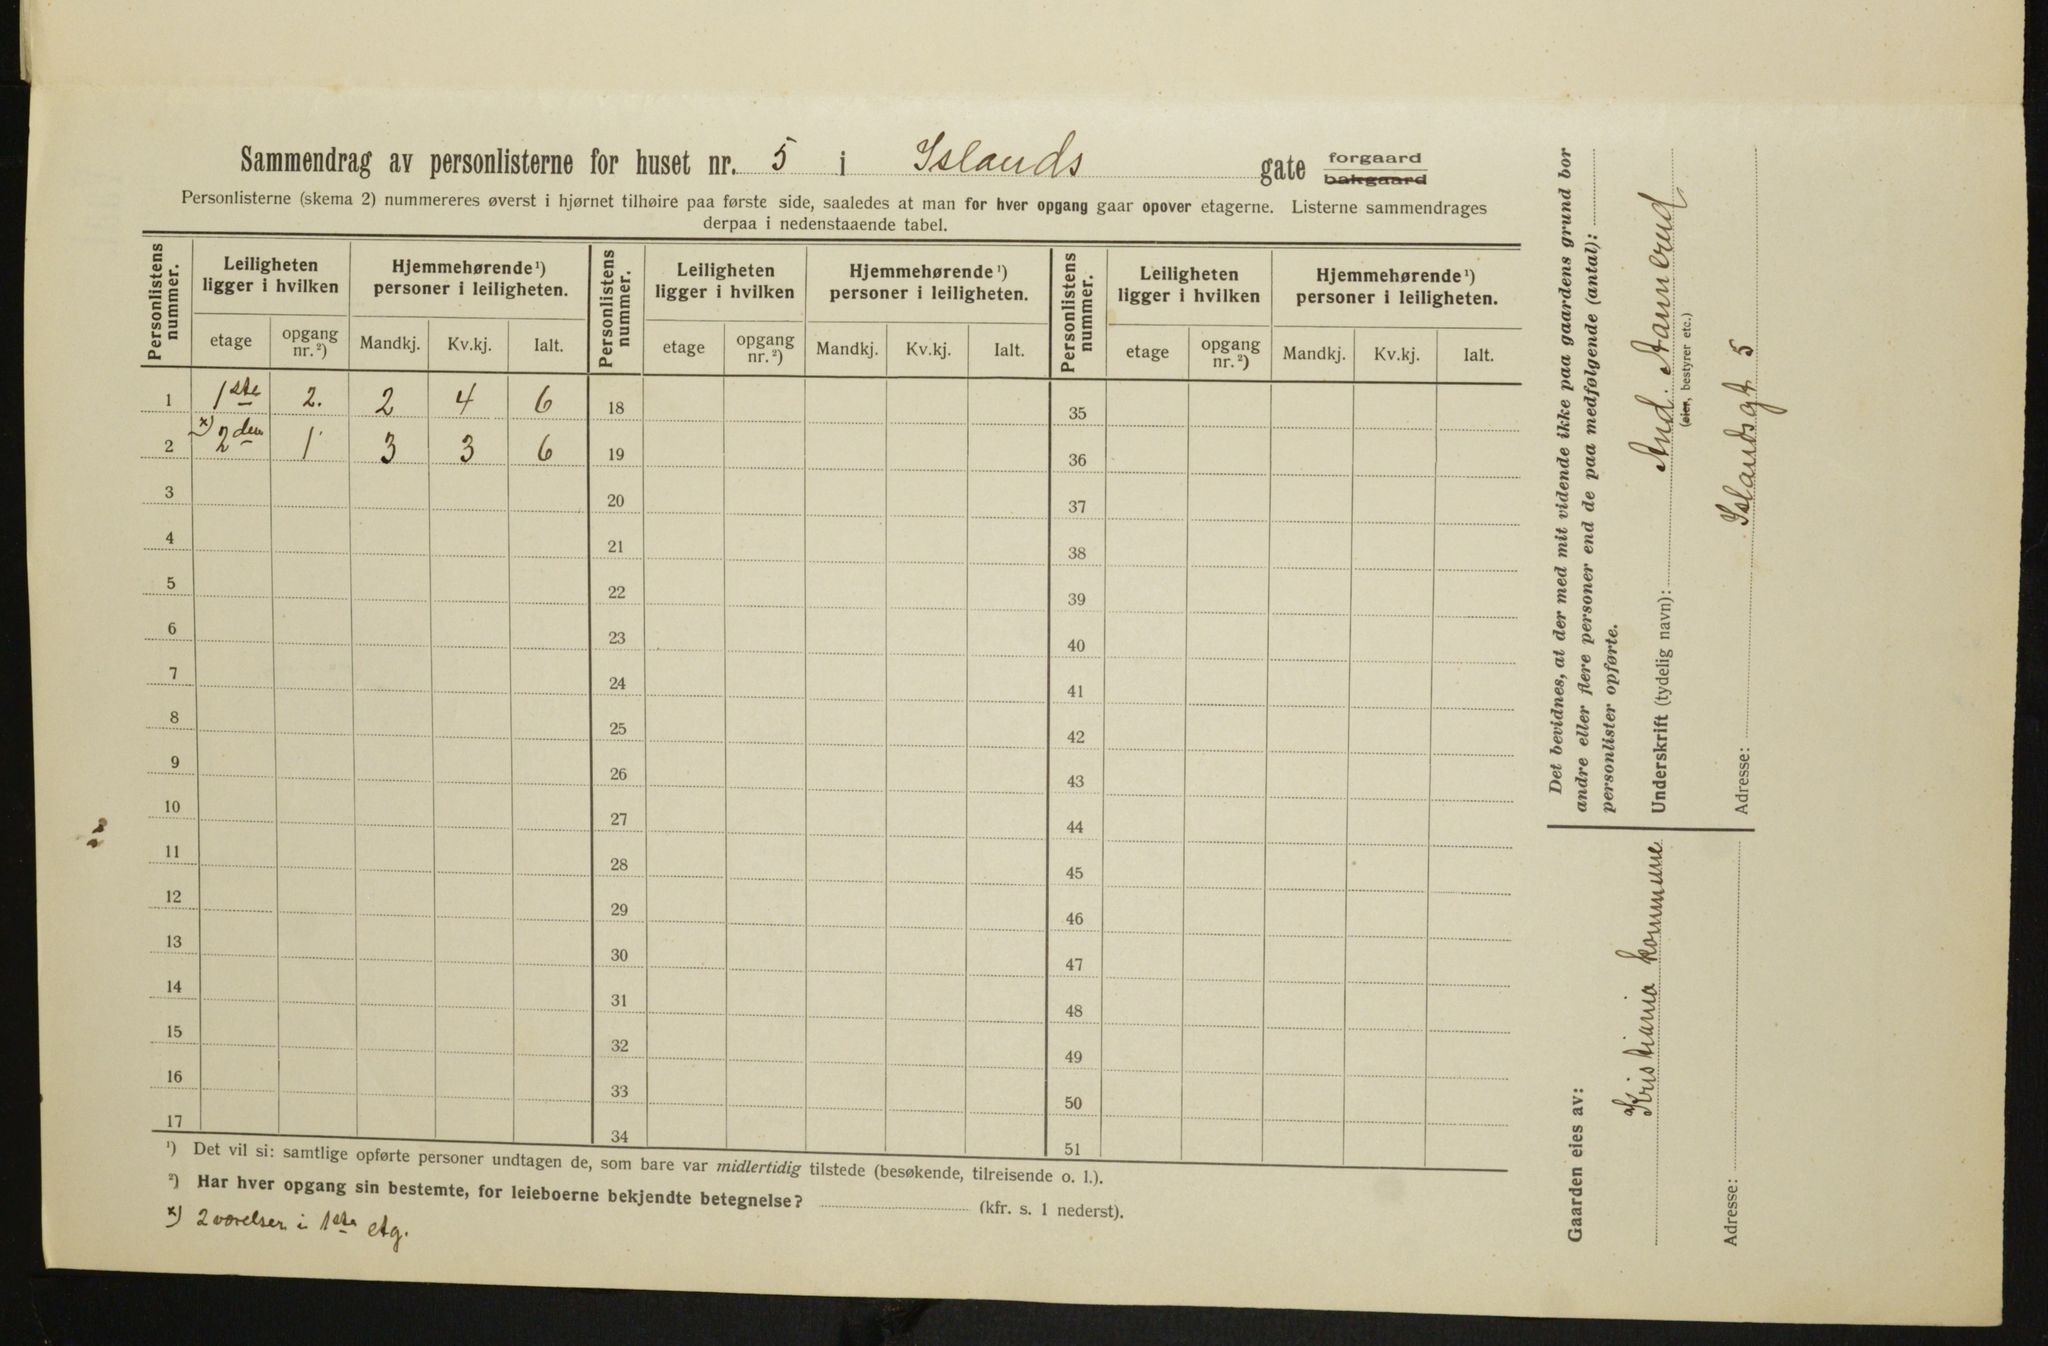 Sammendrag av personlisterne for huset nr. 5 i Islands gate forgaard
bakgaard
Personlisterne (skema 2) nummereres øverst i hjørnet tilhøire paa første side, saaledes at man for hver opgang gaar opover etagerne. Listerne sammendrages
derpaa i nedenstaaende tabel.
Personlistens nummer. Leiligheten ligger i hvilken Hjemmehørende ¹) personer i leiligheten. Personlistens nummer. Leiligheten ligger i hvilken Hjemmehørende ¹) personer i leiligheten. Personlistens nummer. Leiligheten ligger i hvilken Hjemmehørende ¹) personer i leiligheten.
etage opgang nr. ²) Mandkj. Kv.kj. Ialt. etage opgang nr. ²) Mandkj. Kv.kj. Ialt. etage opgang nr. ²) Mandkj. Kv.kj. Ialt.
1 1ste 2. 2 4 6 18 35
2 x) 2den 1 3 3 6 19 36
3 20 37
4 21 38
5 22 39
6 23 40
7 24 41
8 25 42
9 26 43
10 27 44
11 28 45
12 29 46
13 30 47
14 31 48
15 32 49
16 33 50
17 34 51
¹) Det vil si: samtlige opførte personer undtagen de, som bare var midlertidig tilstede (besøkende, tilreisende o. l.).
²) Har hver opgang sin bestemte, for leieboerne bekjendte betegnelse? (kfr. s. 1 nederst).
x) 2 værelser i 1ste etg.
Det bevidnes, at der med mit vidende ikke paa gaardens grund bor
andre eller flere personer end de paa medfølgende (antal):
personlister opførte.
Underskrift (tydelig navn): And. Aannerud
(eier, bestyrer etc.)
Adresse: Islandsgt. 5
Gaarden eies av:
Kristiania kommune
Adresse: